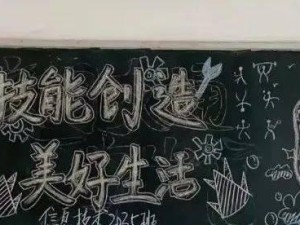 技能创造
美好生活
信息技术2025班